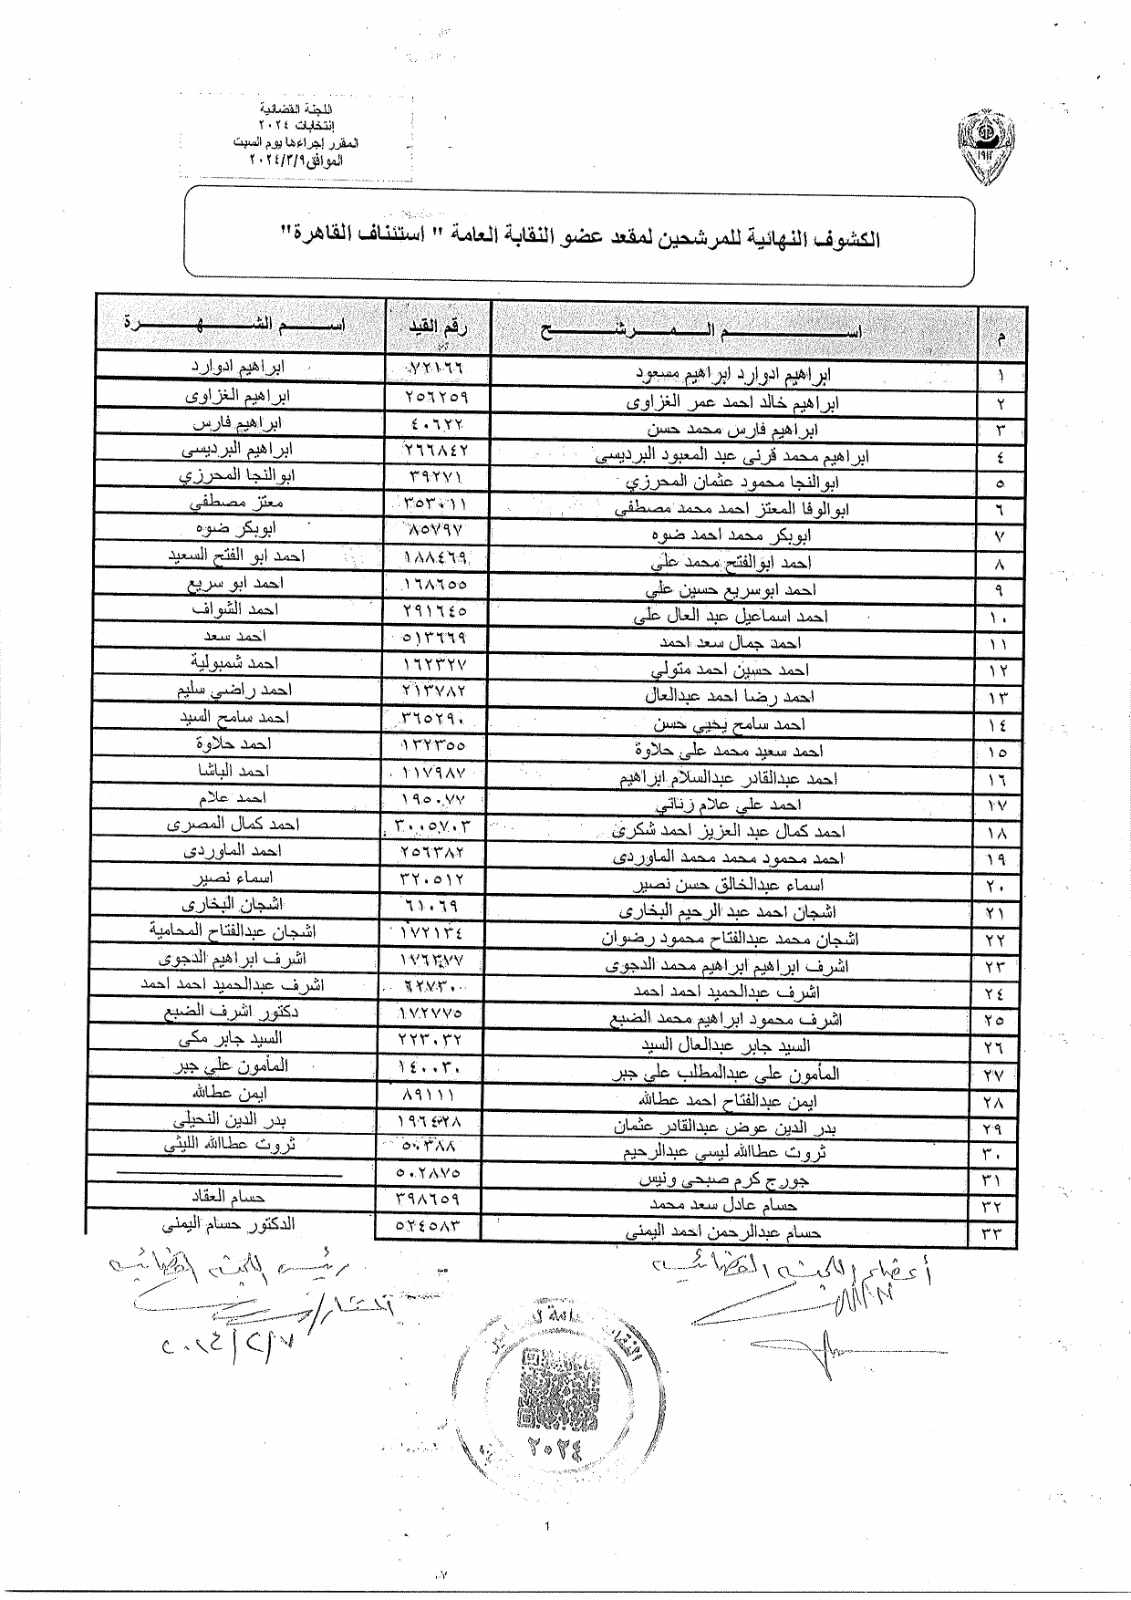 اللجنة القضائية
إنتخابات ٢٠٢٤
المقرر إجراءها يوم السبت
الموافق ٢٠٢٤/٣/٩
١٩١٢
الكشوف النهائية للمرشحين لمقعد عضو النقابة العامة " استئناف القاهرة"
م اســــم الـمـــرشـــح رقم القيد اســــم الشـــهـــرة
١ ابراهيم ادوارد ابراهيم مسعود ٧٢١٦٦ ابراهيم ادوارد
٢ ابراهيم خالد احمد عمر الغزاوى ٢٥٦٢٥٩ ابراهيم الغزاوى
٣ ابراهيم فارس محمد حسن ٤٠٦٢٢ ابراهيم فارس
٤ ابراهيم محمد قرنى عبد المعبود البرديسى ٢٦٦٨٤٢ ابراهيم البرديسى
٥ ابوالنجا محمود عثمان المحرزي ٣٩٢٧١ ابوالنجا المحرزي
٦ ابوالوفا المعتز احمد محمد مصطفي ٣٥٣٠١١ معتز مصطفي
٧ ابوبكر محمد احمد ضوه ٨٥٧٩٧ ابوبكر ضوه
٨ احمد ابوالفتح محمد علي ١٨٨٤٦٩ احمد ابو الفتح السعيد
٩ احمد ابوسريع حسين علي ١٦٨٦٥٥ احمد ابو سريع
١٠ احمد اسماعيل عبد العال على ٢٩١٦٤٥ احمد الشواف
١١ احمد جمال سعد احمد ٥١٣٦٦٩ احمد سعد
١٢ احمد حسين احمد متولي ١٦٢٣٢٧ احمد شمبولية
١٣ احمد رضا احمد عبدالعال ٢١٣٧٨٢ احمد راضي سليم
١٤ احمد سامح يحيي حسن ٣٦٥٢٩٠ احمد سامح السيد
١٥ احمد سعيد محمد علي حلاوة ١٣٢٣٥٥ احمد حلاوة
١٦ احمد عبدالقادر عبدالسلام ابراهيم ١١٧٩٨٧ احمد الباشا
١٧ احمد علي علام زناتي ١٩٥٠٧٧ احمد علام
١٨ احمد كمال عبد العزيز احمد شكرى ٣٠٠٥٧٠٣ احمد كمال المصرى
١٩ احمد محمود محمد محمد الماوردى ٢٥٦٣٨٢ احمد الماوردى
٢٠ اسماء عبدالخالق حسن نصير ٣٢٠٥١٢ اسماء نصير
٢١ اشجان احمد عبد الرحيم البخارى ٦١٠٦٩ اشجان البخارى
٢٢ اشجان محمد عبدالفتاح محمود رضوان ١٧٢١٣٤ اشجان عبدالفتاح المحامية
٢٣ اشرف ابراهيم ابراهيم محمد الدجوى ١٧٦٣٧٧ اشرف ابراهيم الدجوى
٢٤ اشرف عبدالحميد احمد احمد ٦٢٧٣٠ اشرف عبدالحميد احمد احمد
٢٥ اشرف محمود ابراهيم محمد الضبع ١٧٢٧٧٥ دكتور اشرف الضبع
٢٦ السيد جابر عبدالعال السيد ٢٢٣٠٣٢ السيد جابر مكى
٢٧ المأمون علي عبدالمطلب علي جبر ١٤٠٠٣٠ المأمون علي جبر
٢٨ ايمن عبدالفتاح احمد عطالله ٨٩١١١ ايمن عطالله
٢٩ بدر الدين عوض عبدالقادر عثمان ١٩٦٤٢٨ بدر الدين النحيلي
٣٠ ثروت عطاالله ليسى عبدالرحيم ٥٠٣٨٨ ثروت عطاالله الليثى
٣١ جورج كرم صبحى ونيس ٥٠٢٨٧٥
٣٢ حسام عادل سعد محمد ٣٩٨٦٥٩ حسام العقاد
٣٣ حسام عبدالرحمن احمد اليمنى ٥٢٤٥٨٣ الدكتور حسام اليمنى
أعضاء اللجنة القضائية رئيس اللجنة القضائية
المستشار/
٢٠٢٤/٢/٧
٢٠٢٤
1
٠٧